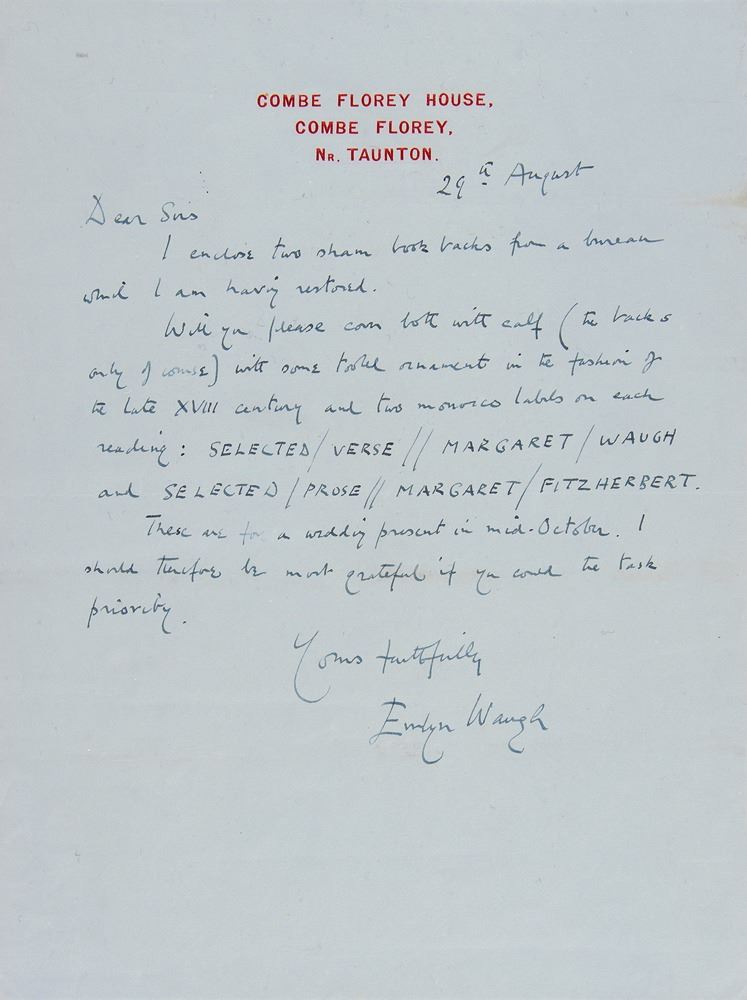 COMBE FLOREY HOUSE,
COMBE FLOREY,
NR. TAUNTON.
29th August
Dear Sirs
I enclose two sham book backs from a bureau
which I am having restored.
Will you please cover both with calf (the backs
only of course) with some tooled ornament in the fashion of
the late XVIII century and two morocco labels on each
reading: SELECTED/VERSE // MARGARET/WAUGH
and SELECTED/PROSE // MARGARET/FITZHERBERT.
These are for a wedding present in mid-October. I
should therefore be most grateful if you could the task
priority.
Yours faithfully
Evelyn Waugh